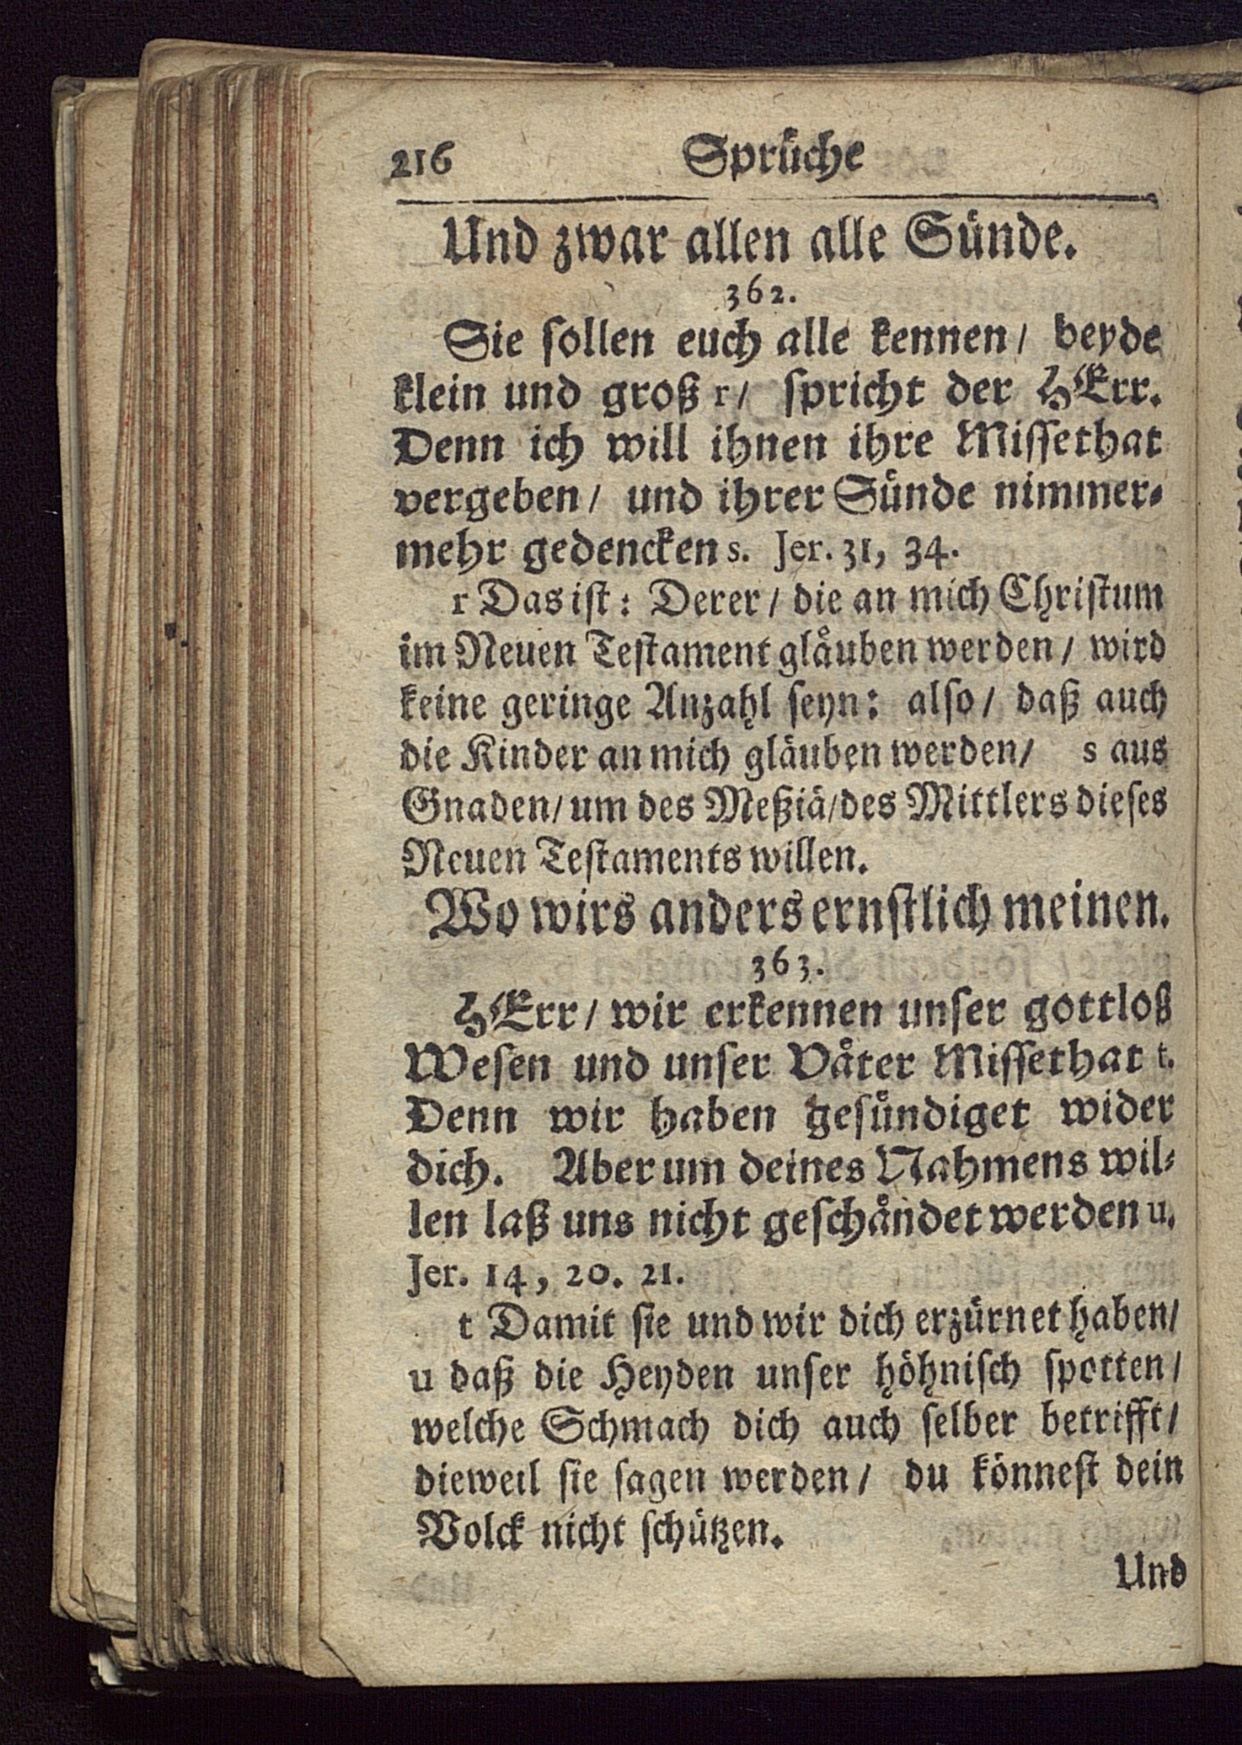 216 Sprüche
Und zwar allen alle Sünde.
362.
Sie sollen euch alle kennen/ beyde
klein und groß r/ spricht der HErr.
Denn ich will ihnen ihre Missethat
vergeben/ und ihrer Sünde nimmer-
mehr gedencken s. Jer. 31, 34.
r Das ist: Derer/ die an mich Christum
im Neuen Testament gläuben werden/ wird
keine geringe Anzahl seyn: also/ daß auch
die Kinder an mich gläuben werden/ s aus
Gnaden/ um des Meßiä/ des Mittlers dieses
Neuen Testaments willen.
Wo wirs anders ernstlich meinen.
363.
HErr/ wir erkennen unser gottloß
Wesen und unser Väter Missethat t.
Denn wir haben gesündiget wider
dich. Aber um deines Nahmens wil-
len laß uns nicht geschändet werden u.
Jer. 14, 20. 21.
t Damit sie und wir dich erzürnet haben/
u daß die Heyden unser höhnisch spotten/
welche Schmach dich auch selber betrifft/
dieweil sie sagen werden/ du könnest dein
Volck nicht schützen.
Und